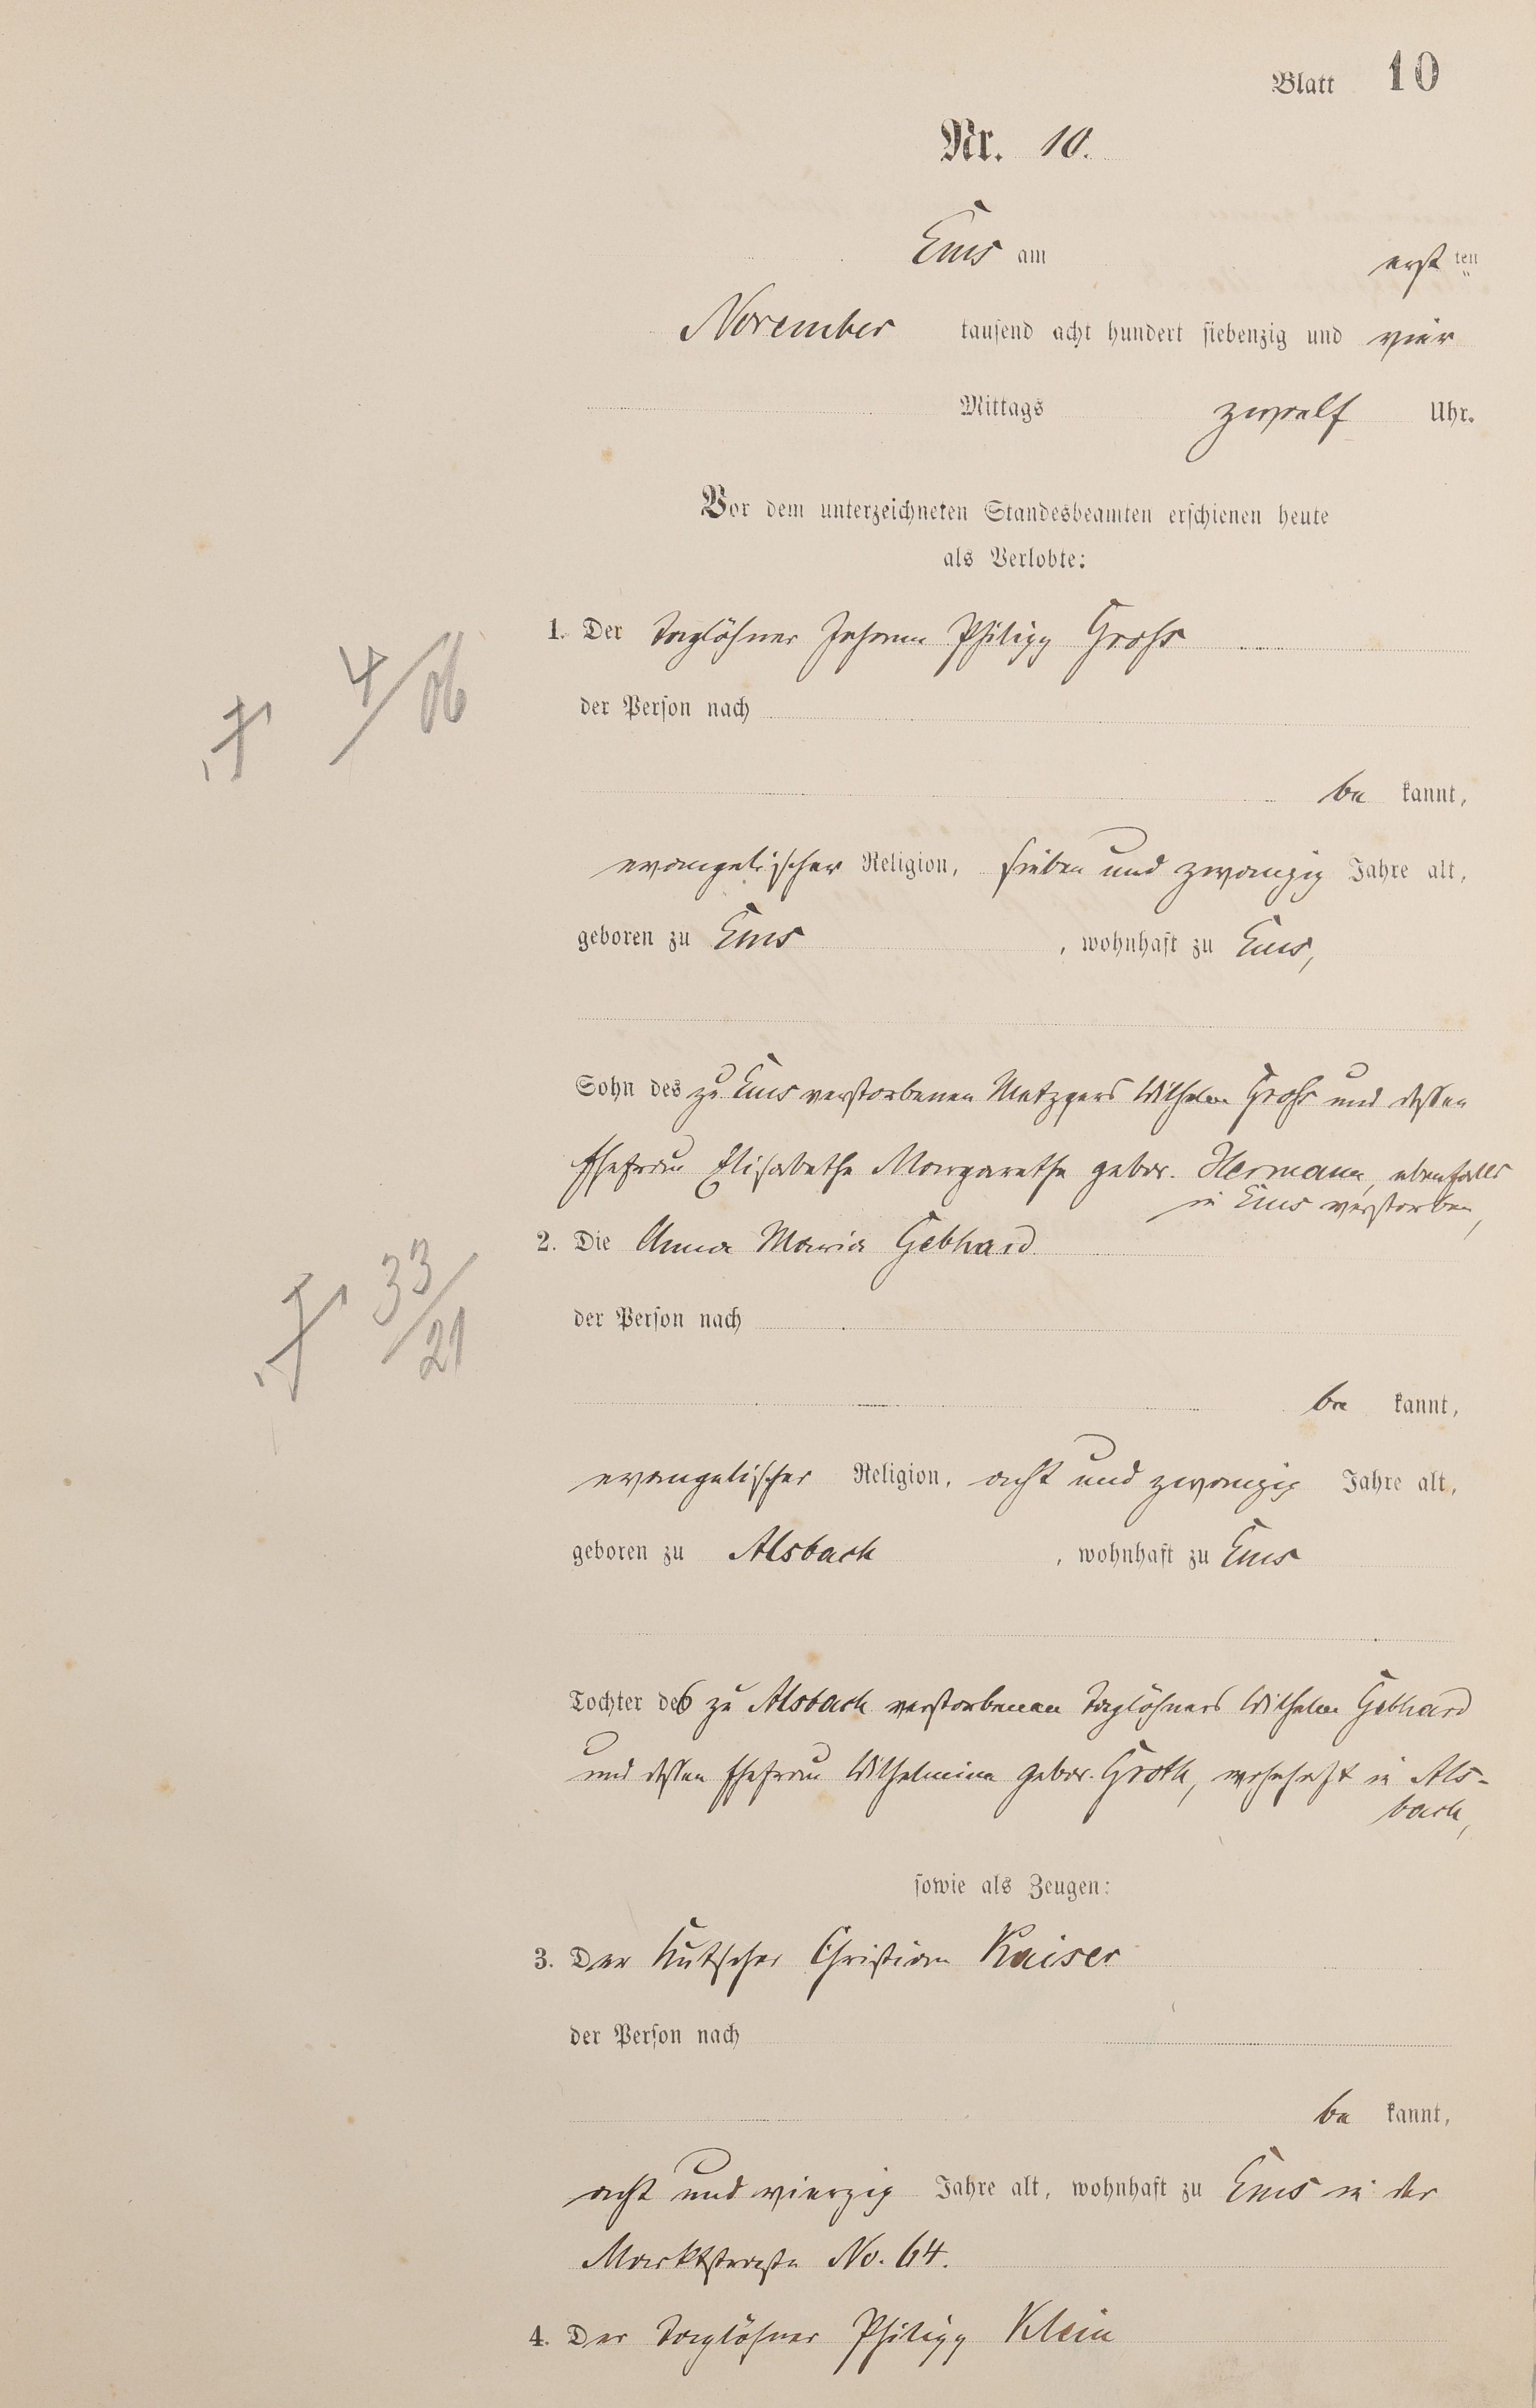 Blatt 10
Nr. 10.
Ems am ersten
November tausend acht hundert siebenzig und vier
Mittags zwoelf Uhr.
Vor dem unterzeichneten Standesbeamten erschienen heute
als Verlobte:
1. Der Taglöhner Johann Philipp Groß
der Person nach
be kannt,
4/06
evangelischer Religion, sieben und zwanzig Jahre alt,
geboren zu Ems, wohnhaft zu Ems,
Sohn des zu Ems verstorbenen Metzgers Wilhelm Groß und dessen
Ehefrau Elisabethe Margarethe gebor. Hermann, ebenfalls
in Ems verstorben,
2. Die Anna Maria Gebhard
der Person nach
33/21
be kannt,
evangelischer Religion, acht und zwanzig Jahre alt,
geboren zu Alsbach, wohnhaft zu Ems
Tochter des zu Alsbach verstorbenen Taglöhners Wilhelm Gebhard
und dessen Ehefrau Wilhelmine gebor. Groth, wohnhaft in Als-
bach,
sowie als Zeugen:
3. Der Kutscher Christian Kaiser
der Person nach
be kannt,
acht und vierzig Jahre alt, wohnhaft zu Ems in der
Marktstraße No. 64.
4. Der Taglöhner Philipp Klein